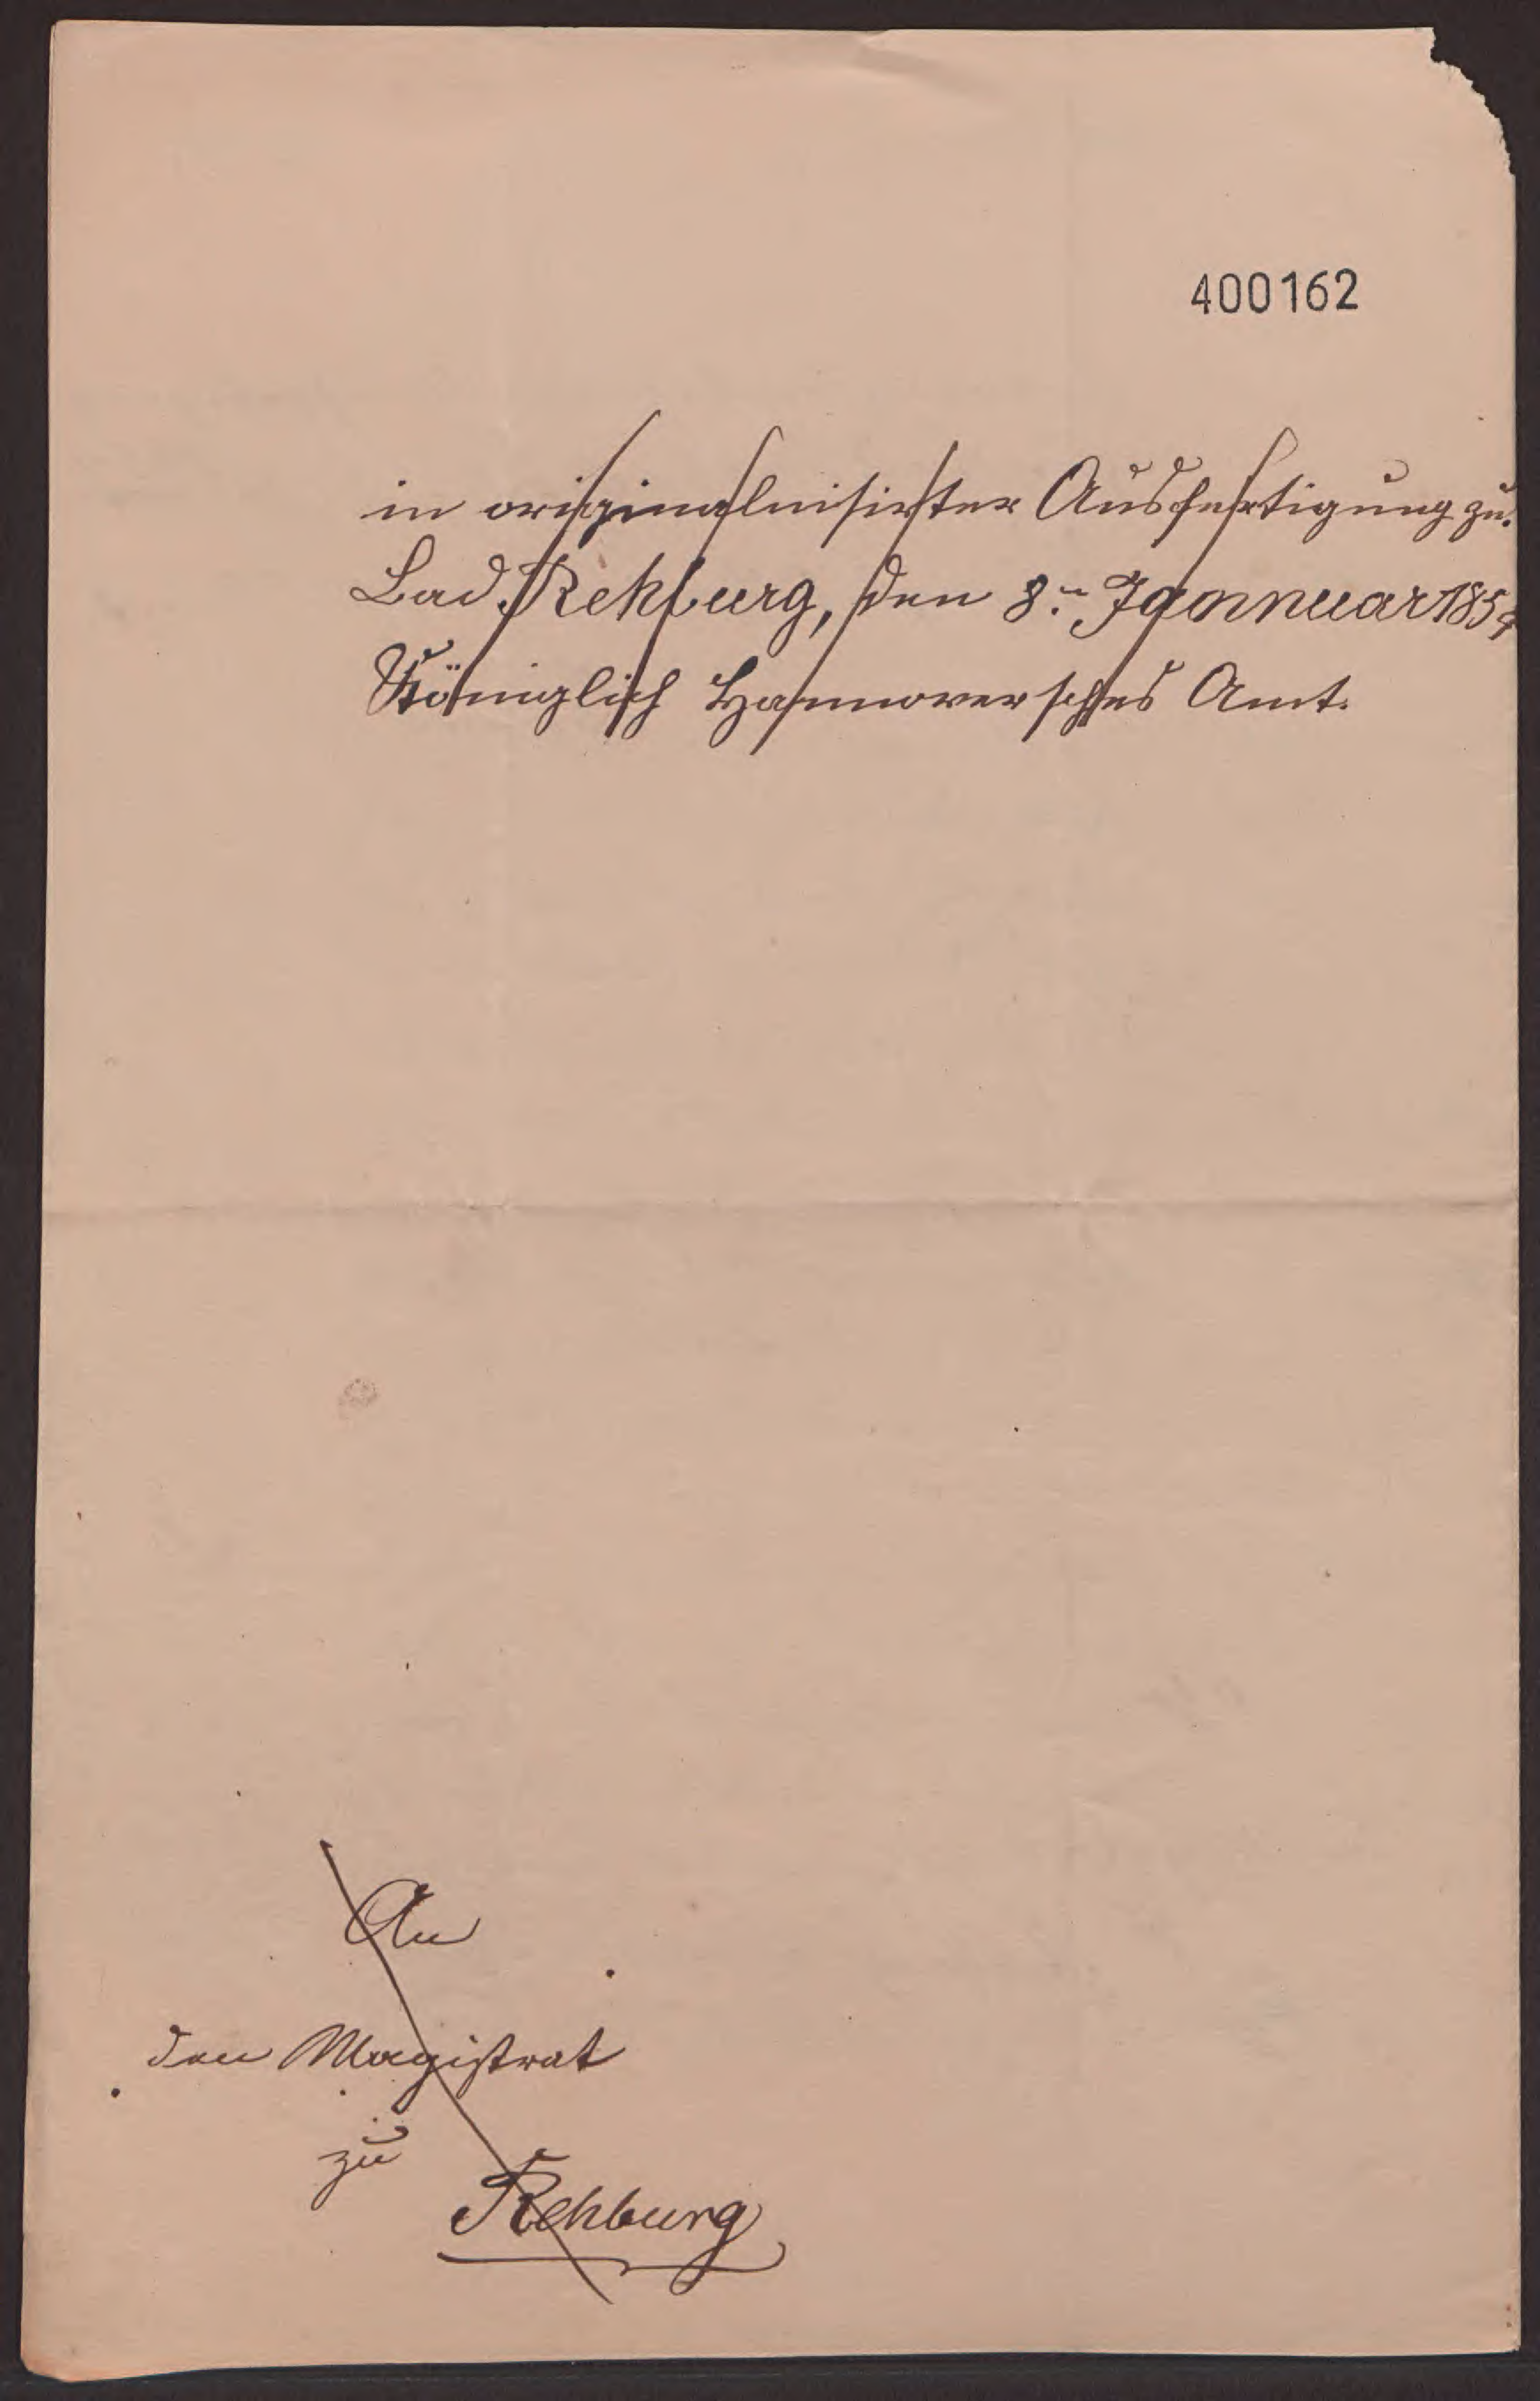 400162
in originalrevisirter Ausfertigung zu.
Bad Rehburg, den 8.ⁿ Jannuar 1854
Königlich Hannoversches Amt.
An
den Magistrat
zu
Rehburg